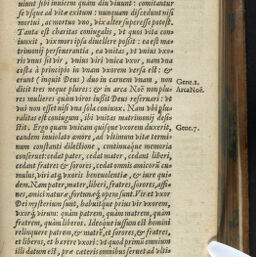 uiunt sibi inuicem quàm diu viuunt: comitantur
se vsque ad vitæ exitum: nunquam discedunt nisi
mortui, ac mortuo vno, vix alter superesse potest.
Tanta est charitas coniugalis, vt quos vita con
iunxit, vix mors ipsa diuellere possit: ea est ma-
trimonij perseuerantia, ea vnitas, vt vnius vxo-
ris vnus sit vir, vnius viri vnica vxor, nam vna
costa à principio in vnam vxorem versa est: &
erunt (inquit Deus) duo in carnem vnam, non
dicit tres neque plures: & in arca Noë non plu-
res mulieres quàm viros iussit Deus reseruari: vt
vni non esset nisi vna soli coniunx. Nam vbi plu-
ralitas est coniugum, ibi vnitas matrimonij defi-
stit. Ergo quam vnicam quisque vxorem duxerit,
eandem inuiolato amore, ad vltimum vitæ termi-
num constanti dilectione, continuaque memoria
conseruet: cedat pater, cedat mater, cedant liberi,
cedant fratres & sorores, cedat omnis amicorū cu-
mulus, viri atque vxoris beneuolentiæ, & iure qui-
dem. Nam pater, mater, liberi, fratres, sorores, affi-
nes, amici naturæ, fortunæque opus sunt: Vir et vxor
Dei mysterium sunt, habuitque prius vir vxorem,
vxorque virum: quàm patrem, quàm matrem, quàm
fratrem, quàm liberos. Ideoque iussum est homini
relinquere patrem, & matrē, et sorores, & fratres,
et liberos, et hærere vxori: vt quod primū omnium
illi datum est, præ cæteris omnibus seruet ad vltio
Gene.2.
Arca Noë.
Gene.7.